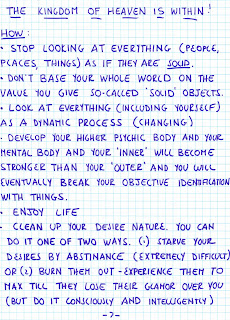 THE KINGDOM OF HEAVEN IS WITHIN!
HOW:
• STOP LOOKING AT EVERYTHING (PEOPLE,
PLACES, THINGS) AS IF THEY ARE SOLID.
• DON'T BASE YOUR WHOLE WORLD ON THE
VALUE YOU GIVE SO-CALLED 'SOLID' OBJECTS.
• LOOK AT EVERYTHING (INCLUDING YOURSELF)
AS A DYNAMIC PROCESS (CHANGING)
• DEVELOP YOUR HIGHER PSYCHIC BODY AND YOUR
MENTAL BODY AND YOUR 'INNER' WILL BECOME
STRONGER THAN YOUR 'OUTER' AND YOU WILL
EVENTUALLY BREAK YOUR OBJECTIVE IDENTIFICATION
WITH THINGS.
• ENJOY LIFE
• CLEAN UP YOUR DESIRE NATURE. YOU CAN
DO IT ONE OF TWO WAYS. (1) STARVE YOUR
DESIRES BY ABSTINANCE (EXTREMELY DIFFICULT)
OR (2) BURN THEM OUT - EXPERIENCE THEM TO
MAX TILL THEY LOSE THEIR GLAMOR OVER YOU
(BUT DO IT CONSCIOUSLY AND INTELLIGENTLY)
-2-